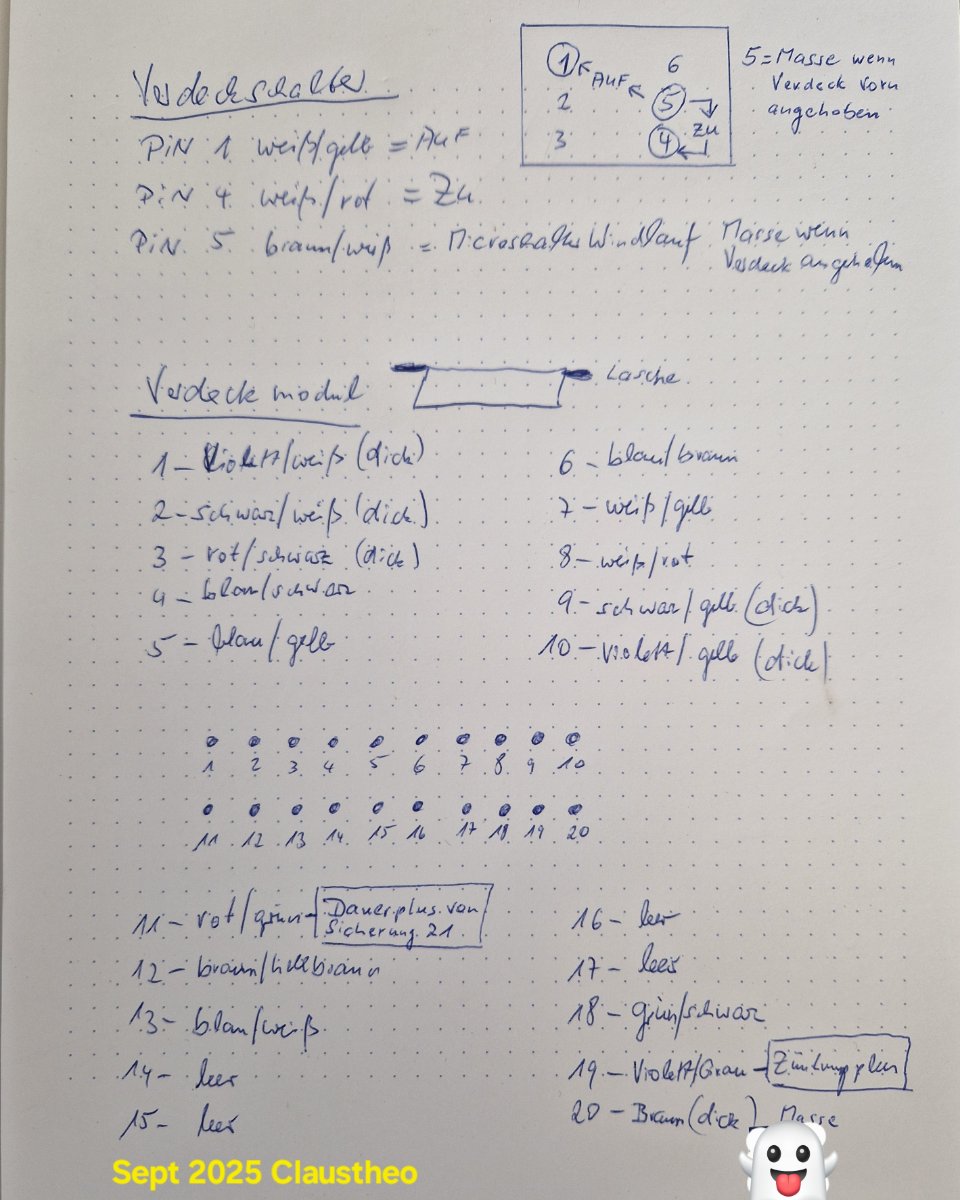 Verdeckschalter
PiN 1 weiß/gelb = AuF
PiN 4 weiß/rot = Zu
PiN 5 braun/weiß = Microschalter Windlauf Masse wenn
Verdeck angehoben
1 AUF 6
2 5
3 4 Zu
5=Masse wenn
Verdeck Vorn
angehoben
Verdeckmodul
Lasche
1 – Violett/weiß (dick)
2 – schwarz/weiß (dick)
3 – rot/schwarz (dick)
4 – blau/schwarz
5 – blau/gelb
6 – blau/braun
7 – weiß/gelb
8 – weiß/rot
9 – schwarz/gelb (dick)
10 – violett/gelb (dick)
1 2 3 4 5 6 7 8 9 10
11 12 13 14 15 16 17 18 19 20
11 – rot/grün – Dauerplus von
Sicherung 21
12 – braun/hellbraun
13 – blau/weiß
14 – leer
15 – leer
16 – leer
17 – leer
18 – grün/schwarz
19 – Violett/Grau – Zündungsplus
20 – Braun (dick) Masse
Sept 2025 Claustheo